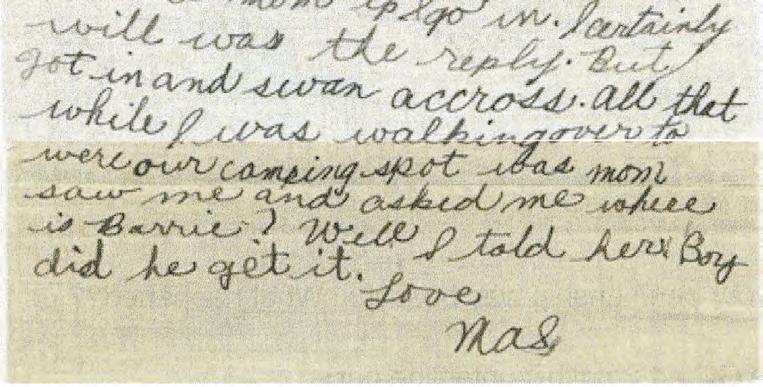 mom if I go in. I certainly
will was the reply. But
got in and swan accross. All that
while I was walking over to
were our camping spot was mom
saw me and asked me where
is Barrie? Well I told her Boy
did he get it.
Love
Mae